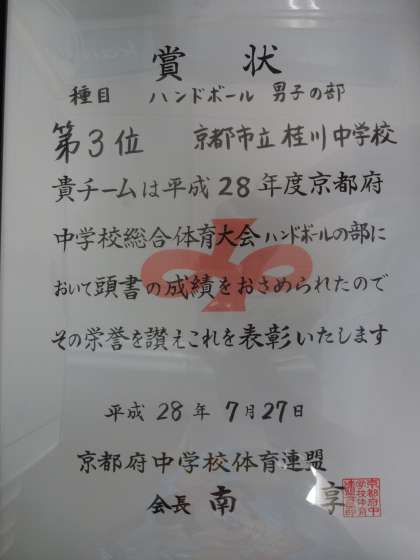 賞状
種目 ハンドボール 男子の部
第3位 京都市立桂川中学校
貴チームは平成28年度京都府
中学校総合体育大会ハンドボールの部に
おいて頭書の成績をおさめられたので
その栄誉を讃えこれを表彰いたします
平成28年7月27日
京都府中学校体育連盟
会長 南 享